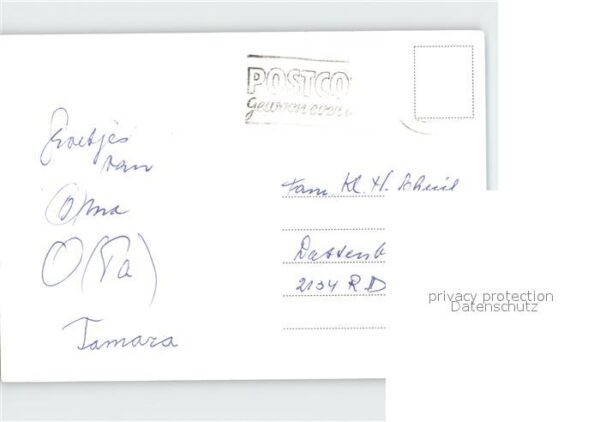 POSTCO
gewoon even
Groetjes
van
Oma
O(Pa)
Tamara
Fam. Kl. H.
Dassenb
2134 RD
privacy protection
Datenschutz